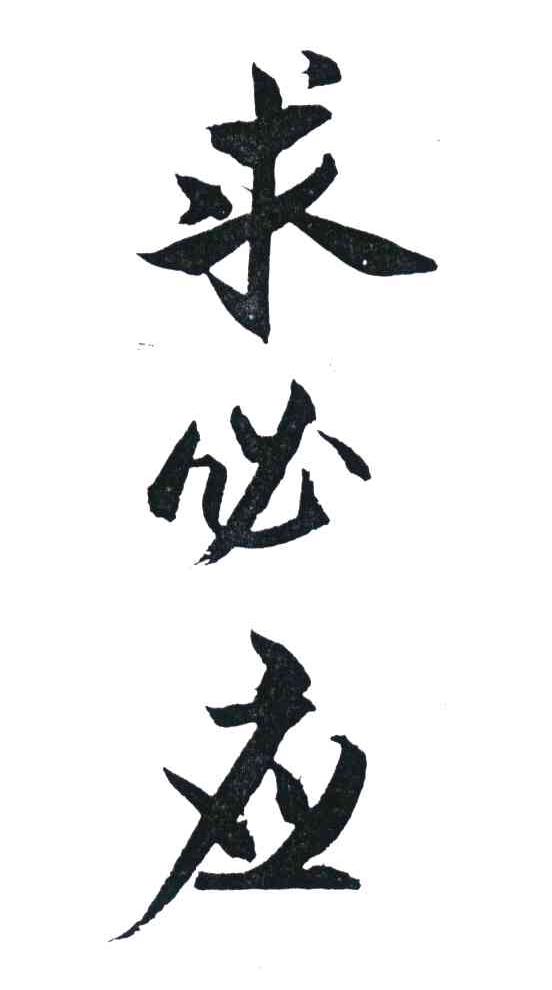 求必应